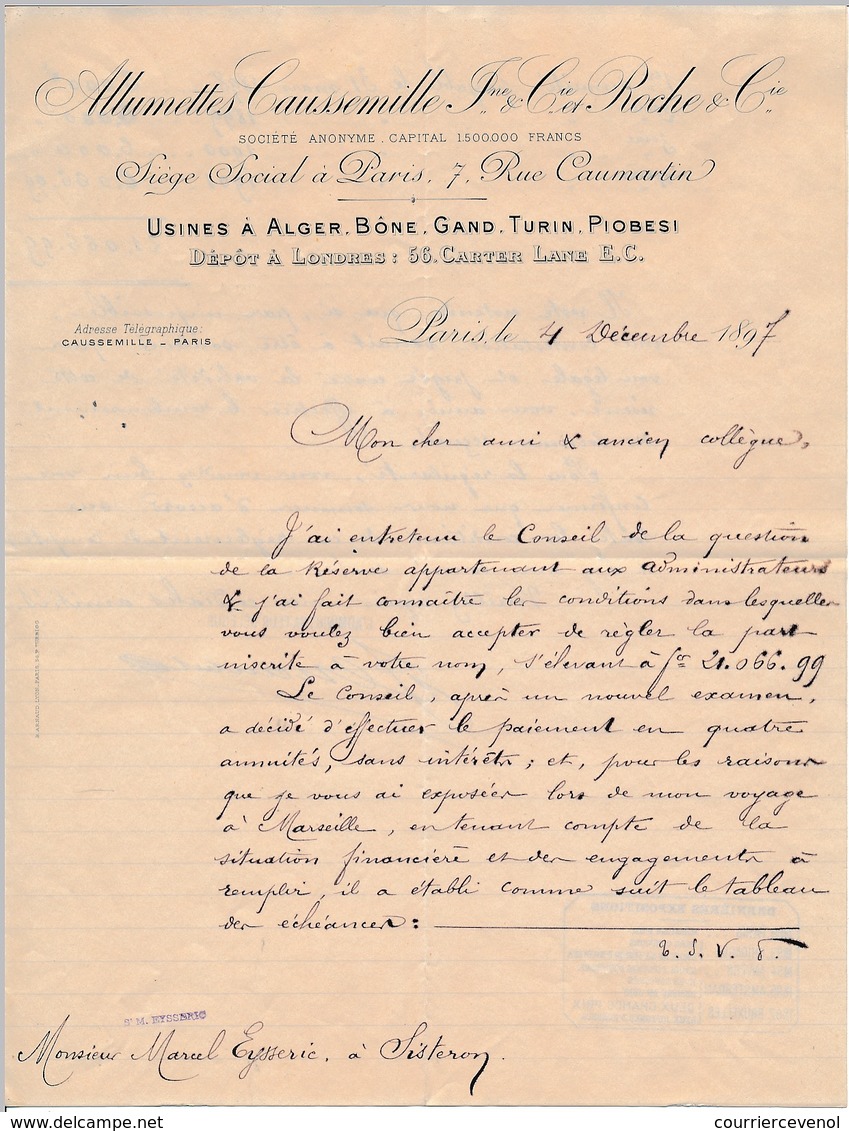 Allumettes Caussemille Jne & Cie et Roche & Cie
SOCIÉTÉ ANONYME. CAPITAL 1.500.000 FRANCS
Siége Social à Paris, 7, Rue Caumartin
USINES À ALGER, BÔNE, GAND, TURIN, PIOBESI
DÉPÔT À LONDRES : 56, CARTER LANE E.C.
Adresse Télégraphique:
CAUSSEMILLE - PARIS
Paris, le 4 Décembre 1897
Mon cher ami & ancien collègue,
J'ai entretenu le Conseil de la question
de la Réserve appartenant aux administrateurs
& j'ai fait connaître les conditions dans lesquelles
vous voulez bien accepter de régler la part
inscrite à votre nom, s'élevant à fcs 21.066.99
Le Conseil, après un nouvel examen,
a décidé d'effectuer le paiement en quatre
annuités, sans intérêts ; et, pour les raisons
que je vous ai exposées lors de mon voyage
à Marseille, en tenant compte de la
situation financière et des engagements à
remplir, il a établi comme suit le tableau
des échéances :
T. S. V. P.
St M. EYSSERIC
Monsieur Marcel Eysseric, à Sisteron.
courriercevenol